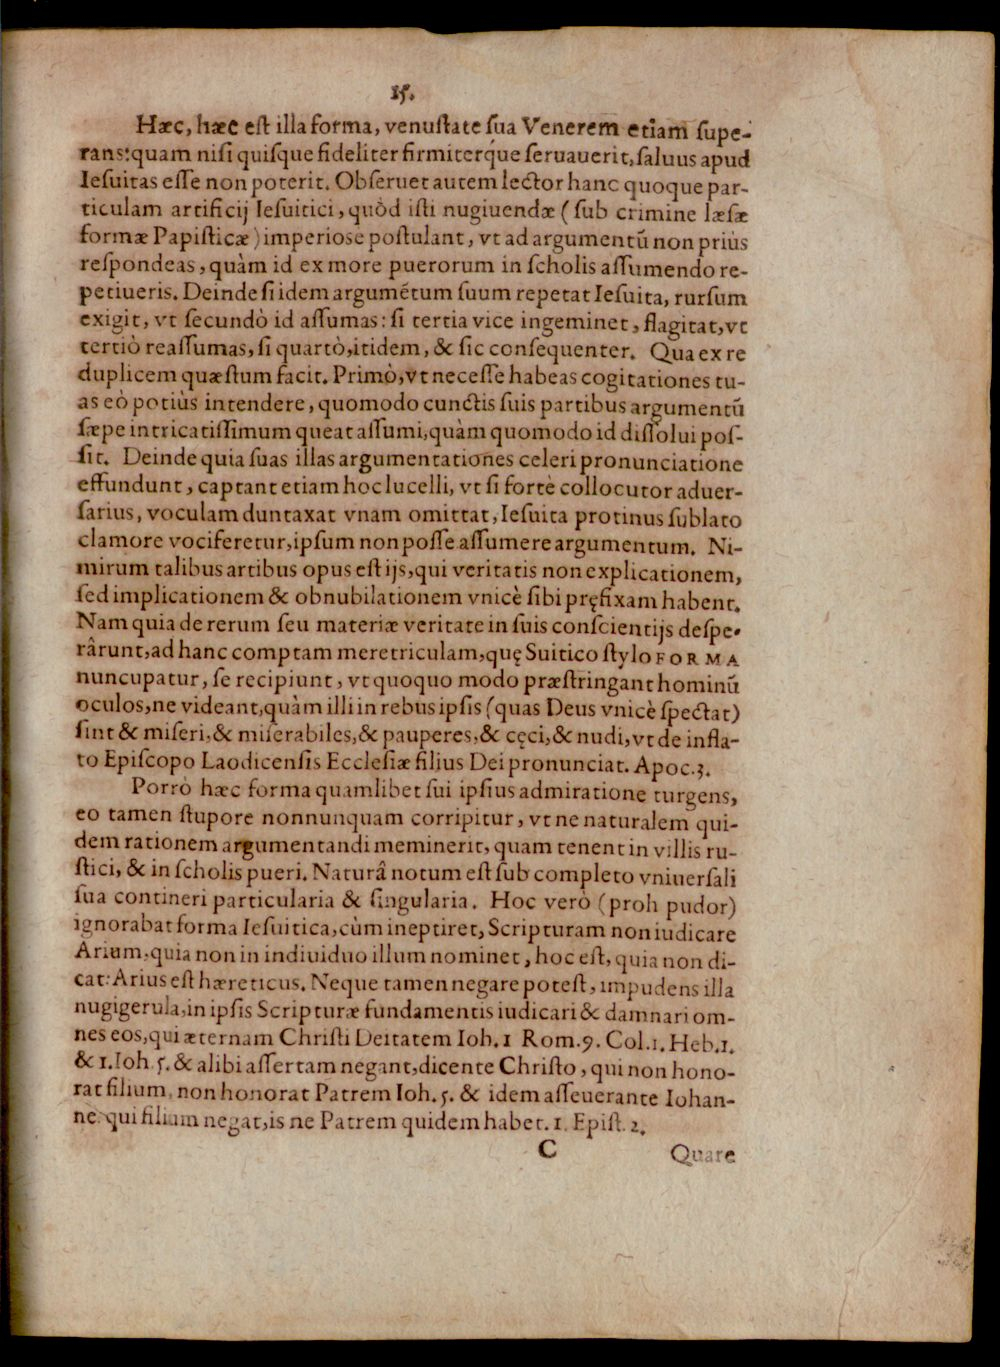 15.
Hæc, hæc est illa forma, venustate sua Venerem etiam supe-
rans: quam nisi quisque fideliter firmiterq́ue seruauerit, saluus apud
Iesuitas esse non poterit. Obseruet autem lector hanc quoque par-
ticulam artificij Iesuitici, quòd isti nugiuendæ (sub crimine læsæ
formæ Papisticæ) imperiose postulant, vt ad argumentū non priùs
respondeas, quàm id ex more puerorum in scholis assumendo re-
petiueris. Deinde si idem argumētum suum repetat Iesuita, rursum
exigit, vt secundò id assumas: si tertia vice ingeminet, flagitat, vt
tertiò reassumas, si quartò, itidem, & sic consequenter. Qua ex re
duplicem quæstum facit. Primò, vt necesse habeas cogitationes tu-
as eò potiùs intendere, quomodo cunctis suis partibus argumentū
sæpe intricatissimum queat assumi, quàm quomodo id dissolui pos-
sit. Deinde quia suas illas argumentationes celeri pronunciatione
effundunt, captant etiam hoc lucelli, vt si fortè collocutor aduer-
sarius, voculam duntaxat vnam omittat, Iesuita protinus sublato
clamore vociferetur, ipsum non posse assumere argumentum. Ni-
mirum talibus artibus opus est ijs, qui veritatis non explicationem,
sed implicationem & obnubilationem vnicè sibi pręfixam habent.
Nam quia de rerum seu materiæ veritate in suis conscientijs despe-
rârunt, ad hanc comptam meretriculam, quę Suitico stylo FORMA
nuncupatur, se recipiunt, vt quoquo modo præstringant hominū
oculos, ne videant, quàm illi in rebus ipsis (quas Deus vnicè spectat)
sint & miseri, & miserabiles, & pauperes, & cęci, & nudi, vt de infla-
to Episcopo Laodicensis Ecclesiæ filius Dei pronunciat. Apoc. 3.
Porrò hæc forma quamlibet sui ipsius admiratione turgens,
eo tamen stupore nonnunquam corripitur, vt ne naturalem qui-
dem rationem argumentandi meminerit, quam tenent in villis ru-
stici, & in scholis pueri. Naturâ notum est sub completo vniuersali
sua contineri particularia & singularia. Hoc verò (proh pudor)
ignorabat forma Iesuitica, cùm ineptiret, Scripturam non iudicare
Arium, quia non in indiuiduo illum nominet, hoc est, quia non di-
cat: Arius est hæreticus. Neque tamen negare potest, impudens illa
nugigerula, in ipsis Scripturæ fundamentis iudicari & damnari om-
nes eos, qui æternam Christi Deitatem Ioh. 1 Rom. 9. Col. 1. Heb. 1.
& 1. Ioh. 5. & alibi assertam negant, dicente Christo, qui non hono-
rat filium, non honorat Patrem Ioh. 5. & idem asseuerante Iohan-
ne. qui filium negat, is ne Patrem quidem habet. 1. Epist. 2.
C Quare